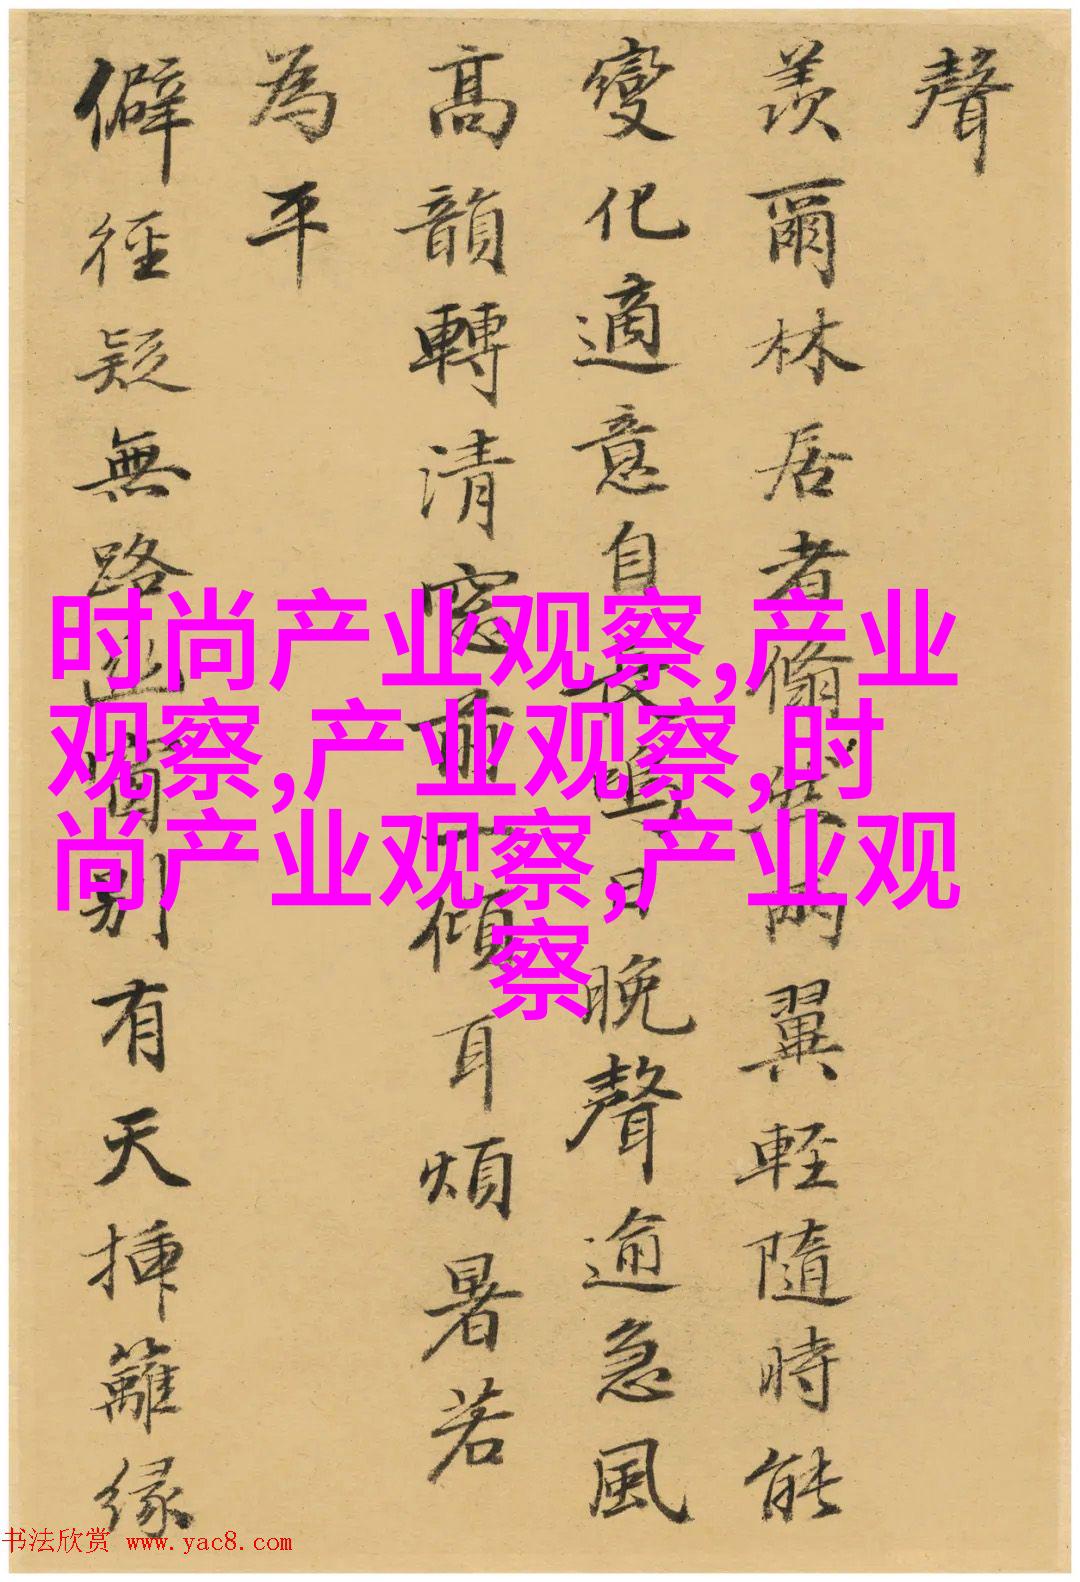 聲
羨爾林居者翛然兩翼輕隨時能
變化適意自長鳴日晚聲逾急風
高韻轉清窓前一傾耳煩暑若
為平
僻徑疑無路幽窗別有天揷籬緣
时尚产业观察,产业
观察,产业观察,时
尚产业观察,产业观
察
书法欣赏 www.yac8.com